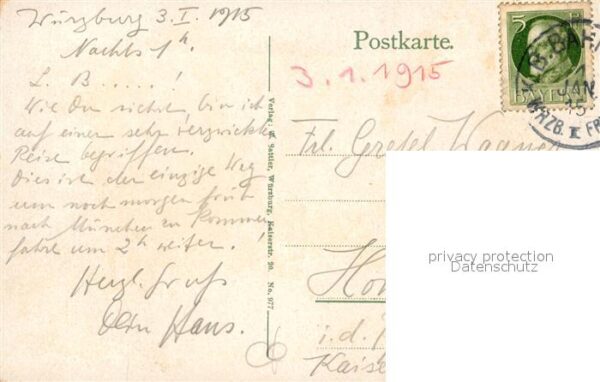 Würzburg 3. I. 1915
Nachts 1h
L. B......!
Wie Du siehst bin ich
auf einer sehr verzwickten
Reise begriffen.
Dies ist der einzige Weg
um noch morgen früh
nach München zu kommen
fahre um 2h weiter!
Herzl. Gruß
Dein Hans.
Verlag: W. Sattler, Würzburg, Kaiserstr. 20. No. 977
Postkarte.
3.1.1915
5
BAYERN
JAN
15
WRZB. II FR
Frl. Gretel Wagner
i.d.
Kaise
privacy protection
Datenschutz